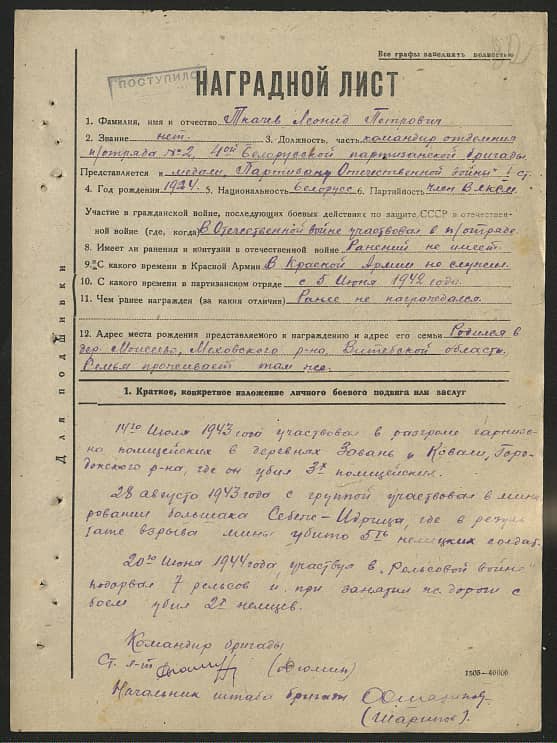 Все графы заполнять полностью
ПОСТУПИЛО
НАГРАДНОЙ ЛИСТ
1. Фамилия, имя и отчество Ткачев Леонид Петрович
2. Звание нет. 3. Должность, часть командир отделения
п/отряда №2, 4ой Белорусской партизанской бригады.
Представляется к медали „Партизану Отечественной войны" I ст.
4. Год рождения 1924. 5. Национальность Белорус 6. Партийность член ВЛКСМ.
Участие в гражданской войне, последующих боевых действиях по защите СССР и отечествен-
ной войне (где, когда) В Отечественной войне участвовал в п/отряде.
8. Имеет ли ранения и контузии в отечественной войне Ранений не имеет.
9. С какого времени в Красной Армии В Красной Армии не служил.
10. С какого времени в партизанском отряде с 5 июня 1942 года.
11. Чем ранее награжден (за какия отличия) Ранее не награждался.
12. Адрес места рождения представляемого к награждению и адрес его семьи Родился в
дер. Моисеево, Меховского р-на, Витебской области.
Семья проживает там же.
Для подшивки
1. Краткое, конкретное изложение личного боевого подвига или заслуг
14го июля 1943 года участвовал в разгроме гарнизо-
на полицейских в деревнях и Ковали, Горо-
докского р-на, где он убил 3х полицейских.
28 августа 1943 года с группой участвовал в мини-
ровании большака Себеж-Идрица, где в резуль-
тате взрыва мины убито 5ть немецких солдат.
20го июня 1944 года, участвуя в „Рельсовой войне"
подорвал 7 рельсов и при занятии жел. дороги с
боем убил 2х немцев.
Командир бригады
Ст. л-т (Дюмин)
1505—40000
Начальник штаба бригады
(Шарипов)